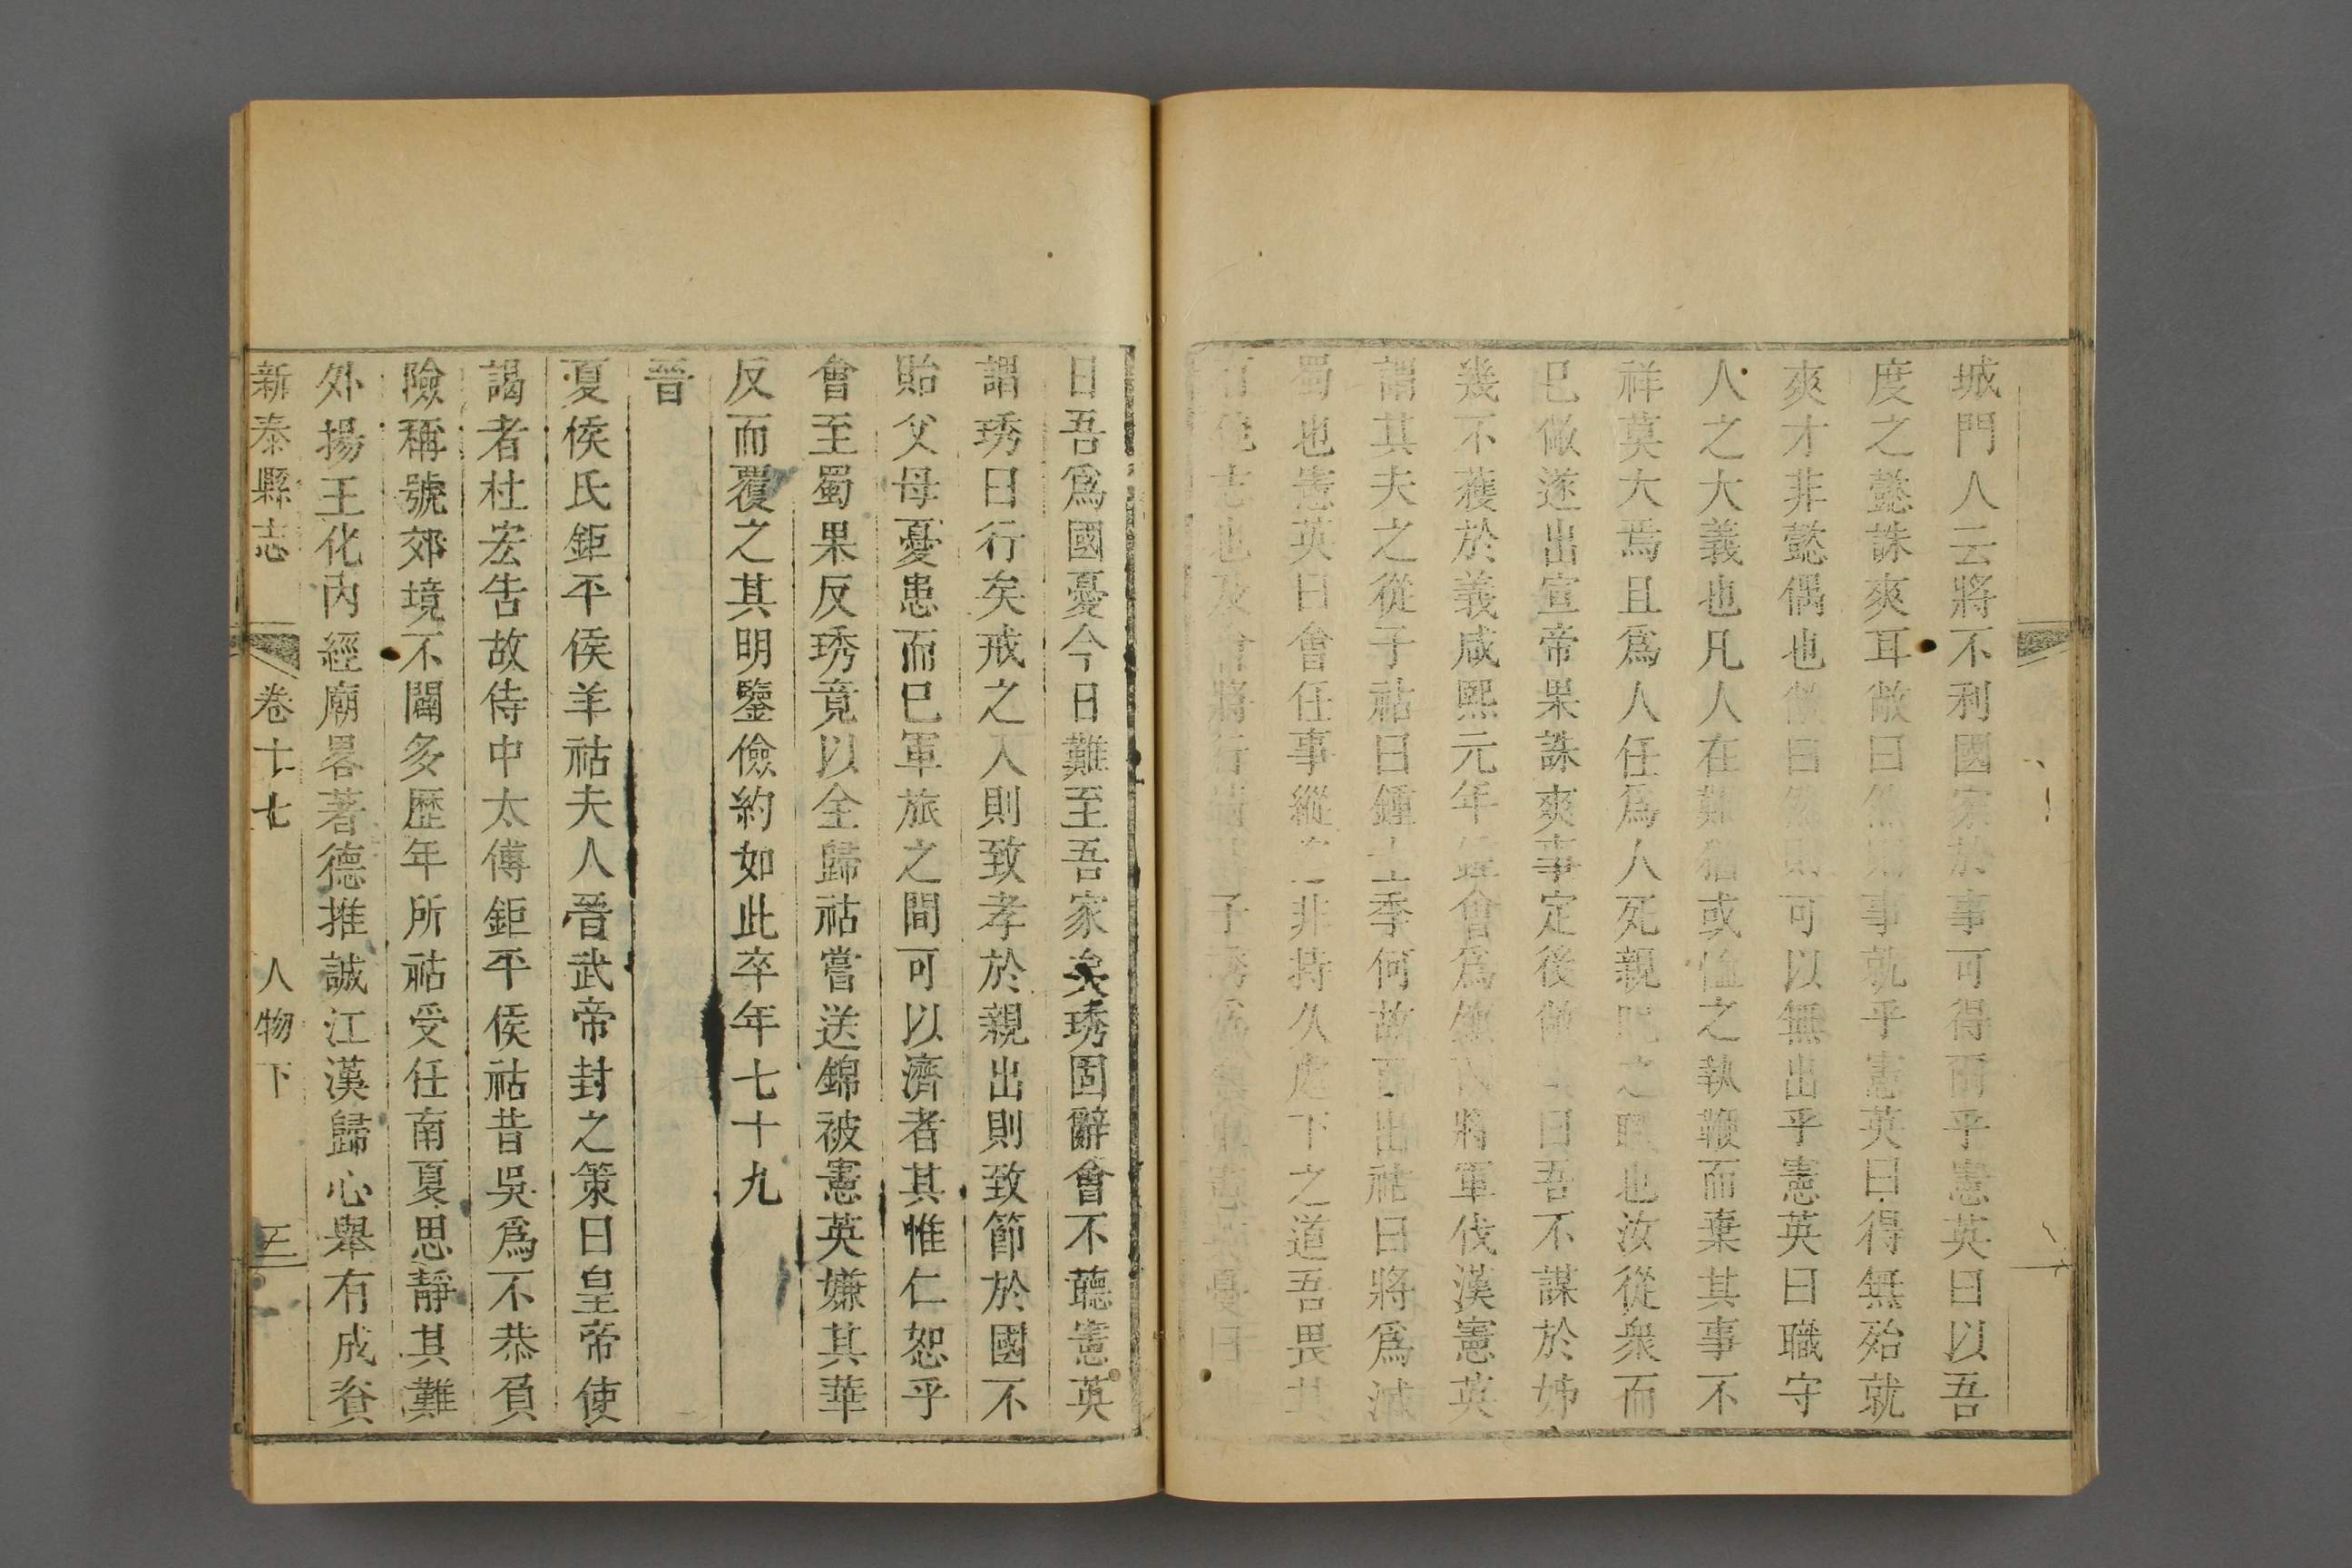 城門人云將不利國家於事可得而乎憲英曰以吾
度之懿誅爽耳敞曰然則事就乎憲英曰得無殆就
爽才非懿偶也敞曰然則可以無出乎憲英曰職守
人之大義也凡人在難猶或恤之執鞭而棄其事不
祥莫大焉且爲人任爲人死親昵之職也汝從衆而
巳敞遂出宣帝果誅爽事定後敞曰吾不謀於姊
幾不獲於義咸熙元年鍾會爲鎮西將軍伐漢憲英
謂其夫之從子祜曰鍾士季何故西出祜曰將爲滅
蜀也憲英曰會任事縱非持久處下之道吾畏其
有他志也及會將行請子琇爲憂曰
日吾爲國憂今日難至吾家矣琇固辭會不聽憲英
謂琇曰行矣戒之入則致孝於親出則致節於國不
貽父母憂患而巳軍旅之間可以濟者其惟仁恕乎
會至蜀果反琇竟以全歸祜嘗送錦被憲英嫌其華
反而覆之其明鑒儉約如此卒年七十九
晉
夏侯氏鉅平侯羊祜夫人晉武帝封之策曰皇帝使
謁者杜宏告故侍中太傅鉅平侯祜昔吳爲不恭負
險稱號郊境不闢多歷年所祜受任南夏思靜其難
外揚王化內經廟畧著德推誠江漢歸心舉有成資
新泰縣志 卷十七 人物下 三